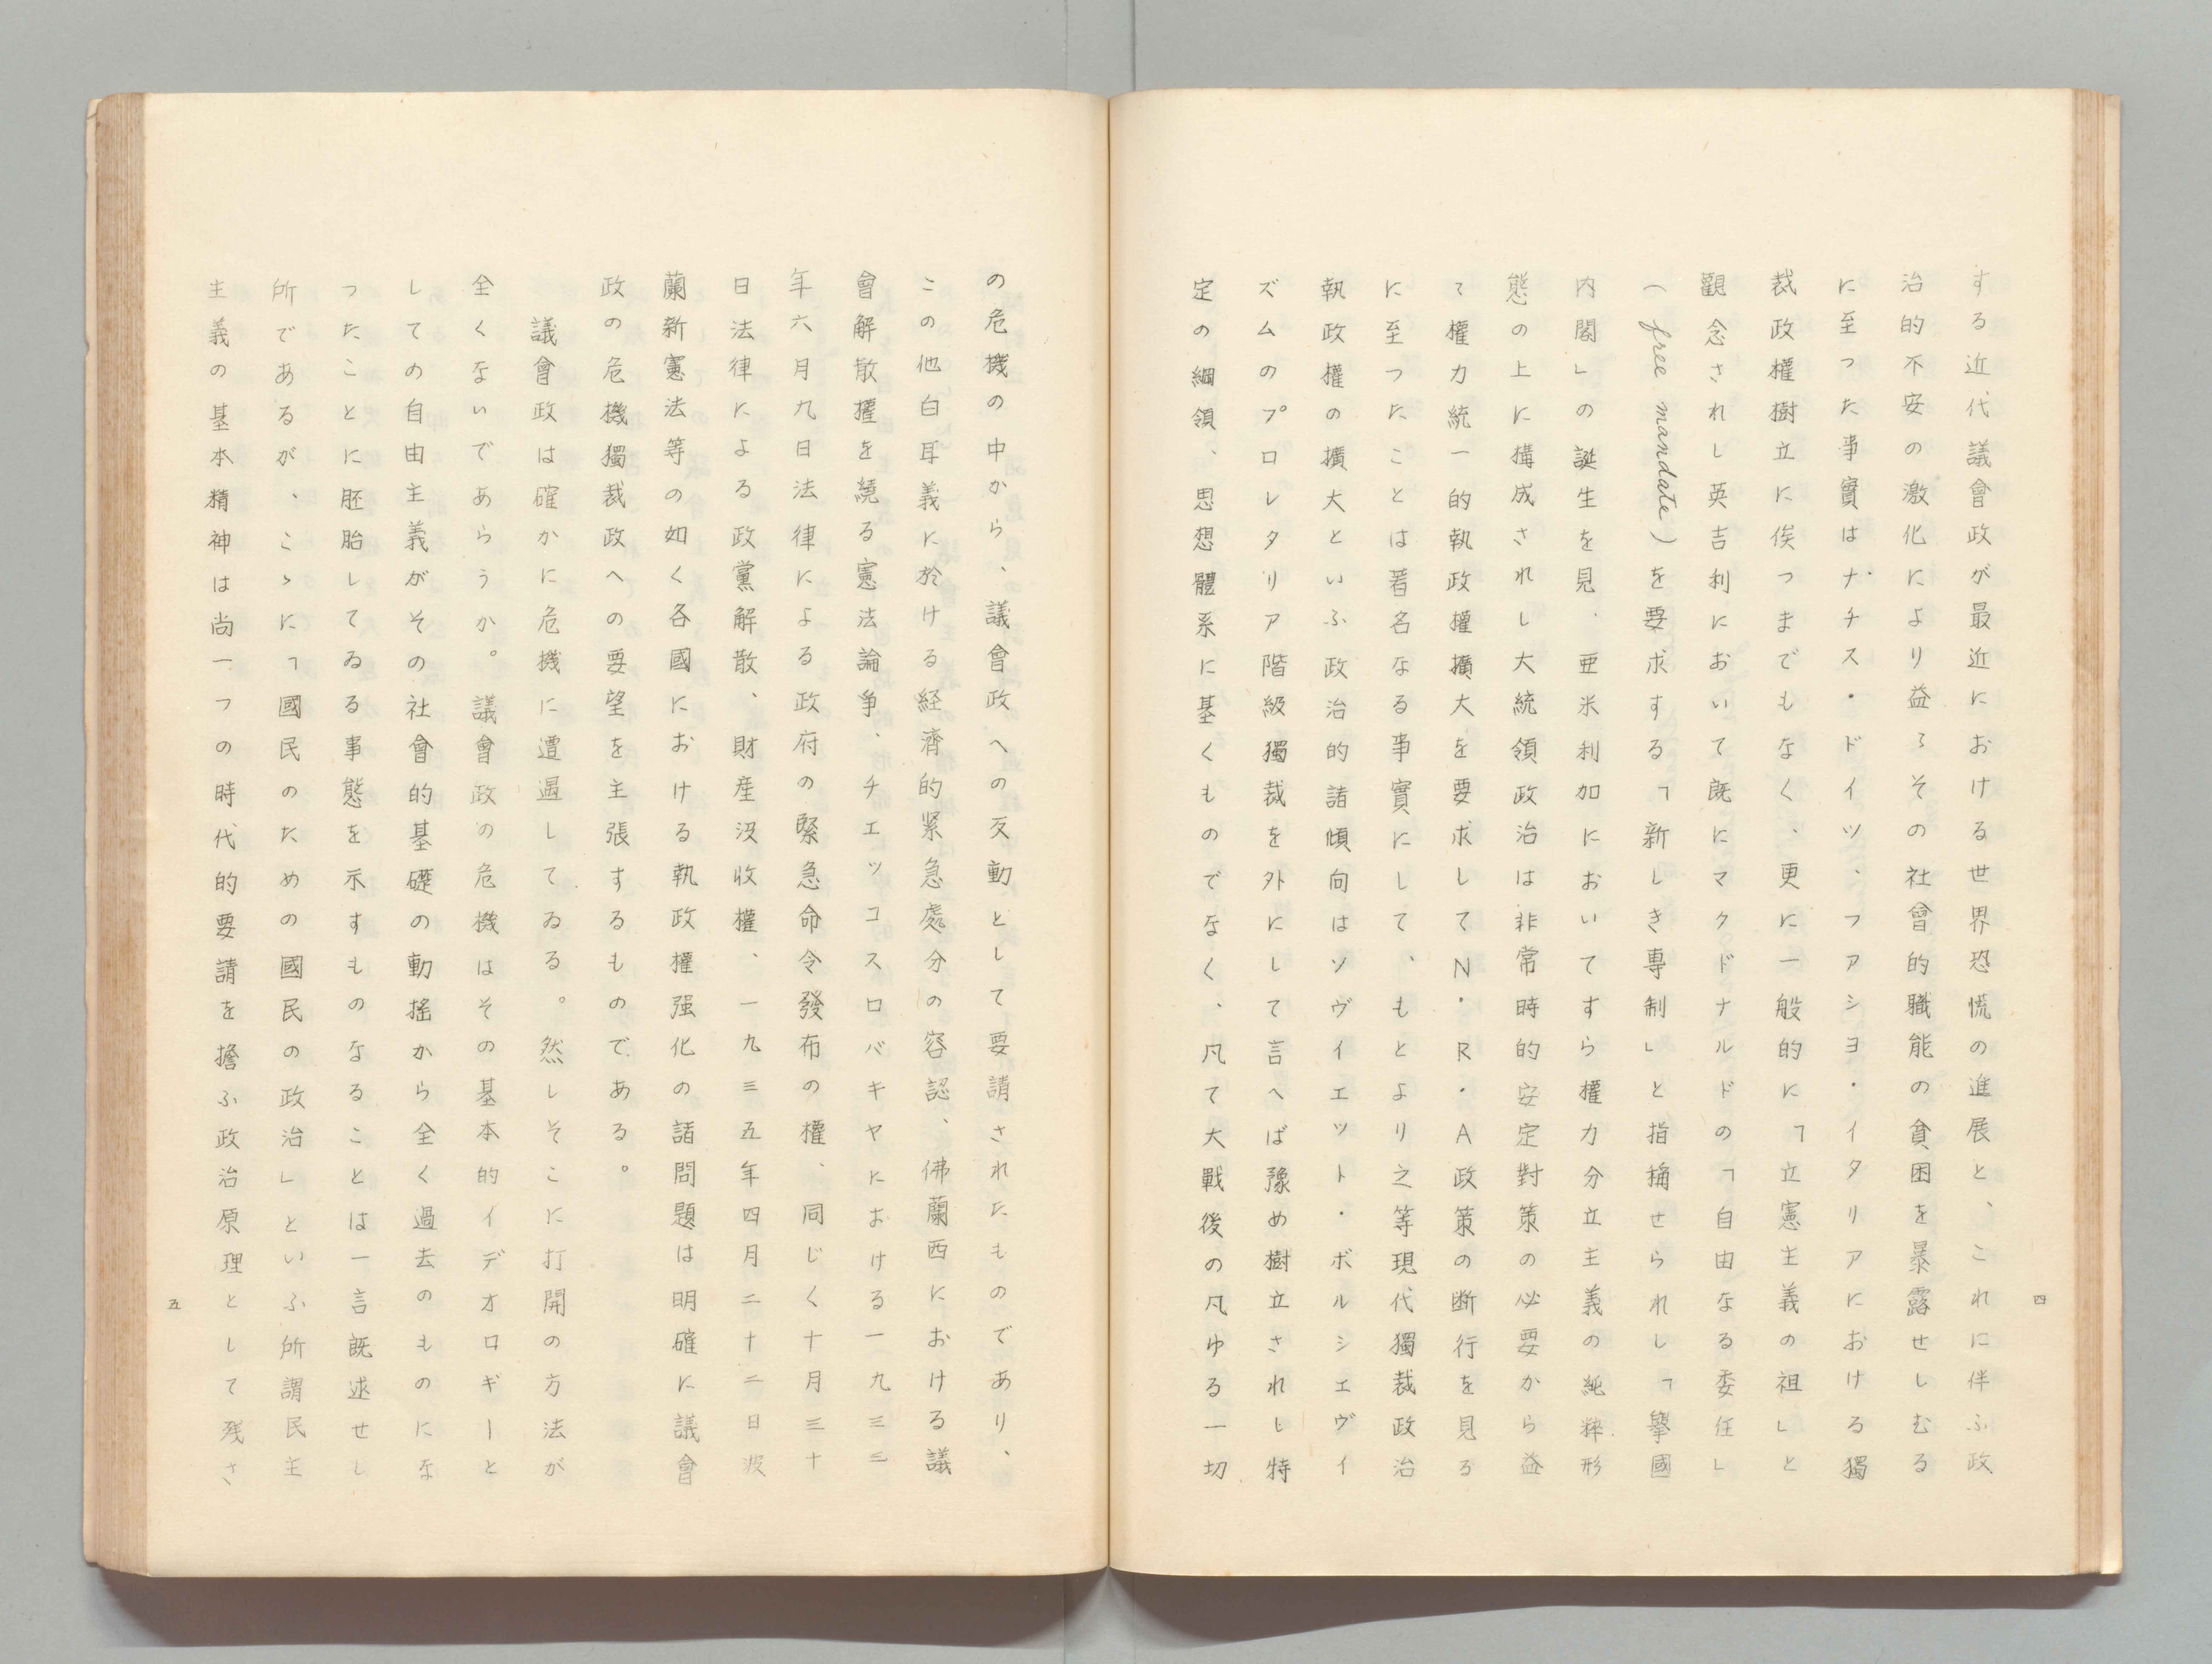 する近代議會政が最近における世界恐慌の進展と、これに伴ふ政
治的不安の激化により益〻その社會的職能の貧困を暴露せしむる
に至つた事實はナチス・ドイツ、フアシヨ・イタリアにおける獨
裁政權樹立に俟つまでもなく、更に一般的に「立憲主義の祖」と
觀念されし英吉利において既にマクドナルドの「自由なる委任」
(free mandate)を要求する「新しき專制」と指摘せられし「擧國
内閣」の誕生を見、亜米利加においてすら權力分立主義の純粹形
態の上に構成されし大統領政治は非常時的安定對策の必要から益
〻權力統一的執政權擴大を要求してN・R・A政策の断行を見る
に至つたことは著名なる事實にして、もとより之等現代獨裁政治
執政權の擴大といふ政治的諸傾向はソヴイエツト・ボルシエヴイ
ズムのプロレタリア階級獨裁を外にして言へば豫め樹立されし特
定の綱領、思想體系に基くものでなく、凡て大戰後の凡ゆる一切
四
の危機の中から、議會政への反動として要請されたものであり、
この他白耳義に於ける経濟的緊急處分の容認、佛蘭西における議
會解散權を繞る憲法論争、チエツコスロバキヤにおける一九三三
年六月九日法律による政府の緊急命令發布の權、同じく十月三十
日法律による政黨解散、財産沒收權、一九三五年四月二十二日波
蘭新憲法等の如く各國における執政權强化の諸問題は明確に議會
政の危機獨裁政への要望を主張するものである。
議會政は確かに危機に遭遇してゐる。然しそこに打開の方法が
全くないであらうか。議會政の危機はその基本的イデオロギーと
しての自由主義がその社會的基礎の動搖から全く過去のものにな
つたことに胚胎してゐる事態を示すものなることは一言既述せし
所であるが、こゝに「國民のための國民の政治」といふ所謂民主
主義の基本精神は尚一つの時代的要請を擔ふ政治原理として残さ
五